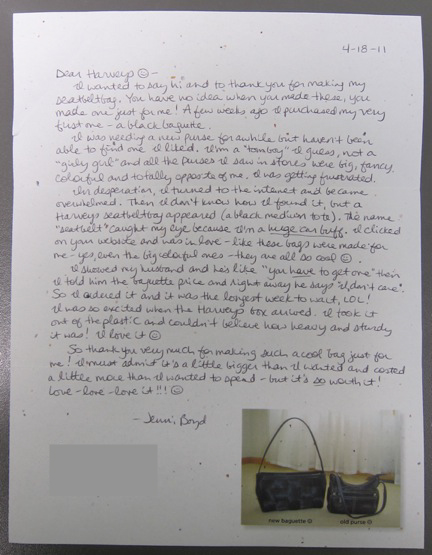 4-18-11
Dear Harveys ☺ -
I wanted to say hi and to thank you for making my
seatbeltbag. You have no idea when you made these, you
made one just for me! A few weeks ago I purchased my very
first one - a black baguette.
I was needing a new purse for awhile but haven't been
able to find one I liked. I'm a "tomboy" I guess, not a
"girly girl" and all the purses I saw in stores were big, fancy
colorful and totally opposite of me. I was getting frustrated.
In desperation, I turned to the internet and became
overwelmed. Then I don't know how I found it, but a
Harveys seatbeltbag appeared (a black medium tote). The name
"seatbelt" caught my eye because I'm a huge car buff. I clicked
on your website and was in love - like these bags were made for
me - yes, even the big colorful ones - they are all so cool ☺.
I showed my husband and he's like "you have to get one" then
I told him the baguette price and right away he says "I don't care".
So I ordered it and it was the longest week to wait, LOL!
I was so excited when the Harveys box arrived. I took it
out of the plastic and couldn't believe how heavy and sturdy
it was! I love it ☺
So thank you very much for making such a cool bag just for
me! I must admit it's a little bigger than I wanted and costed
a little more than I wanted to spend - but it's so worth it!
Love - love - love it!!! ☺
- Jenni Boyd
new baguette ☺ old purse ☹